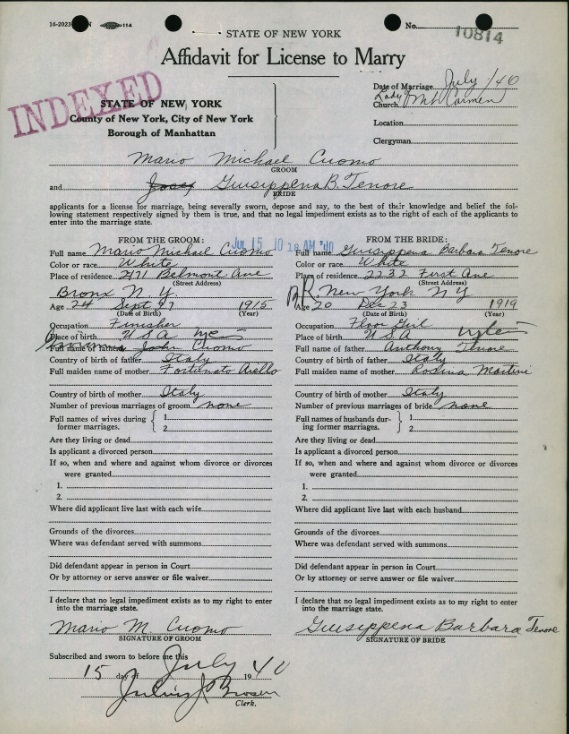 No. 10814
STATE OF NEW YORK
Affidavit for License to Marry
INDEXED
STATE OF NEW YORK
County of New York, City of New York
Borough of Manhattan
Date of Marriage July /40
Church Lady Mt Carmen
Location
Clergyman
Mario Michael Cuomo
GROOM
and Guisippena B. Tenore
BRIDE
applicants for a license for marriage, being severally sworn, depose and say, to the best of their knowledge and belief the fol-
lowing statement respectively signed by them is true, and that no legal impediment exists as to the right of each of the applicants to
enter into the marriage state.
JUL 15 10 AM '40
FROM THE GROOM:
Full name Mario Michael Cuomo
Color or race White
Place of residence 2471 Belmont Ave
(Street Address)
Bronx N. Y.
Age 24 Sept 27 1915
(Date of Birth) (Year)
Occupation Finisher
Place of birth USA NYC
Full name of father John Cuomo
Country of birth of father Italy
Full maiden name of mother Fortunato Aiello
Country of birth of mother Italy
Number of previous marriages of groom none
Full names of wives during
former marriages. 1
2
Are they living or dead
Is applicant a divorced person
If so, when and where and against whom divorce or divorces
were granted
1.
2.
Where did applicant live last with each wife
Grounds of the divorces
Where was defendant served with summons
Did defendant appear in person in Court
Or by attorney or serve answer or file waiver
I declare that no legal impediment exists as to my right to enter
into the marriage state.
Mario M. Cuomo
SIGNATURE OF GROOM
FROM THE BRIDE:
Full name Guisippena Barbara Tenore
Color or race White
Place of residence 2232 First Ave
(Street Address)
New York N Y
Age 20 Dec 23 1919
(Date of Birth) (Year)
Occupation Floor Girl
Place of birth USA NYC
Full name of father Anthony Tenore
Country of birth of father Italy
Full maiden name of mother Rosina Martini
Country of birth of mother Italy
Number of previous marriages of bride none
Full names of husbands dur-
ing former marriages. 1
2
Are they living or dead
Is applicant a divorced person
If so, when and where and against whom divorce or divorces
were granted
1.
2.
Where did applicant live last with each husband
Grounds of the divorces
Where was defendant served with summons
Did defendant appear in person in Court
Or by attorney or serve answer or file waiver
I declare that no legal impediment exists as to my right to enter
into the marriage state.
Guisippena Barbara Tenore
SIGNATURE OF BRIDE
Subscribed and sworn to before me this
15 day of July 1940
Clerk.